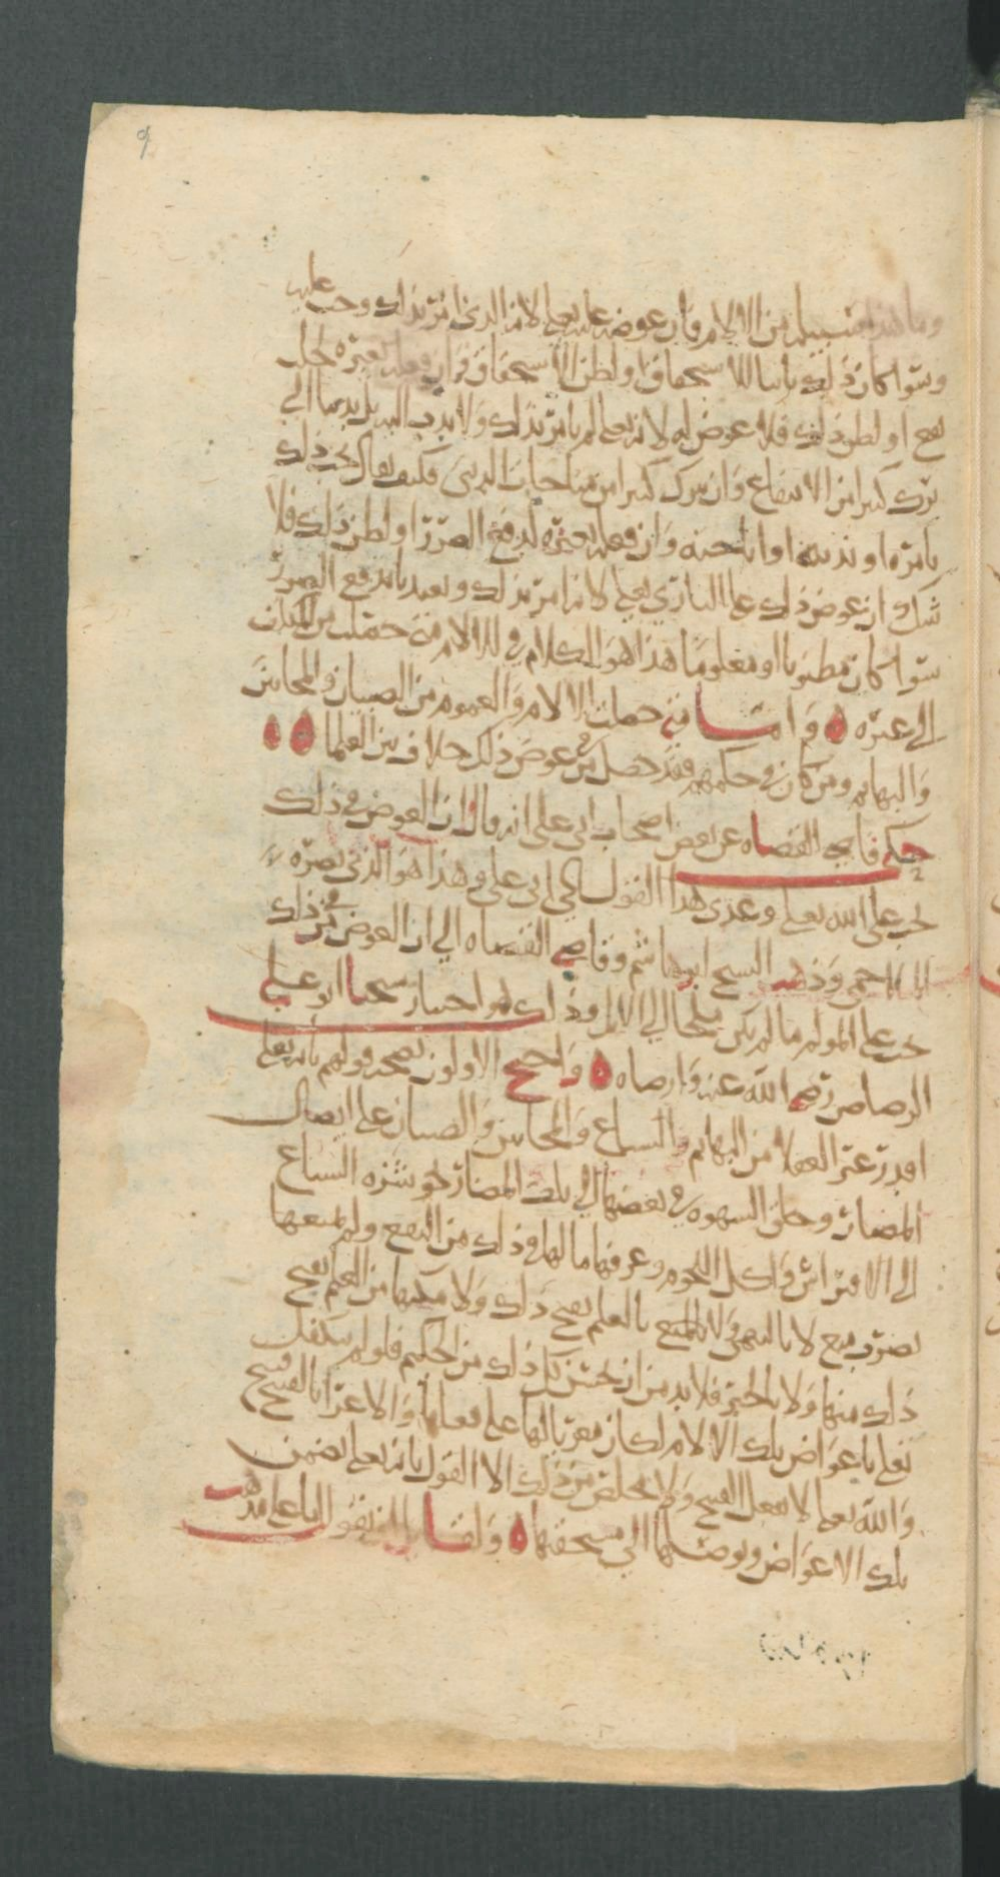 وما هذا سبيله من الالام فان عوضه عليه تعلى لانه الذي امر بذلك وحب عليه
وسوا كان ذلك باسا للاستحقاق او لظن الاستحقاق وان فعله بغيره لجلب
نفع او لظن ذلك فلا عوض له لانه تعلى لم يامر بذلك ولا ندب اليه بل ندبنا الى
ترك كثير من الانتفاع وان نترك كثيرا من مباحات الدنيا فكيف يقال بحر ذلك
بامره او ندبه او اباحته وان فعله بغيره لدفع الضرر او لظن ذلك فلا
شك ان عوض ذلك على الباري تعلى لانه امر بذلك وتعبد بدفع الضرر
سوا كان مظنونا او معلوما هذا هو الكلام في الالام متى حصلت من المكلف
الى غيره ه واما متى حصلت الالام والغموم من الصبيان والمجانين
والبهائم ومن كان في حكمهم فقد حصل في عوض ذلك خلاف بين العلما ه ه
حكى قاضي القضاه عن بعض اصحاب ابي علي انه قال ان العوض في ذلك
يجب على الله تعلى وعزى هذا القول الى ابي علي وهذا هو الذي نصره
وذهب الشيخ ابو هاشم وقاضي القضاه الى ان العوض في ذلك
يجب على المولم ما لم يكن ملجا الى الالم وذلك هو اختيار شيخنا ابو علي
الرصاص رضي الله عنه وارضاه ه واحتج الاولون بصحه قولهم بانه تعلى
اقدر غير العقلا من البهائم والسباع والمجانين والصبيان على ايصال
المضار وخلق الشهوه في بعضها الى تلك المضار نحو شره السباع
الى الافتراس واكل اللحوم وعرفها ما لها في ذلك من النفع ولم يمنعها
بضرب منع لا بالنهي ولا بالمنع بالعلم بقبح ذلك ولا مكنها من العلم بقبح
ذلك منها ولا بالخبر فلا بد من ان يحسن كل ذلك من الحكيم فلو لم يتكفل
تعلى باعواض تلك الالام لكان مغريا لها على فعلها والاغرا بالقبيح قبيح
والله تعلى لا يفعل القبيح ولا مخلص من ذلك الا القول بانه تعلى يضمن
تلك الاعواض ويوصلها الى مستحقها ه ولقائل ان يقول اما على مذهب